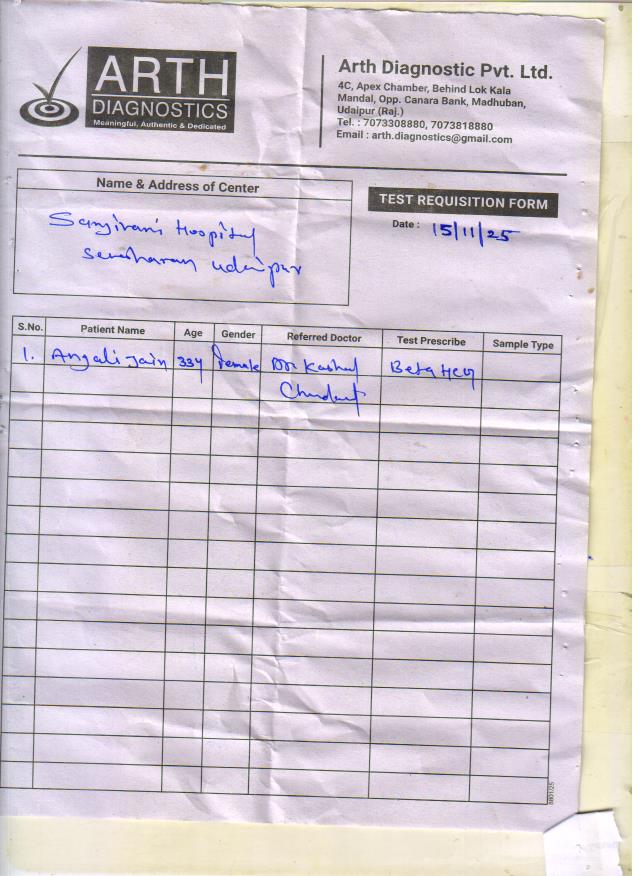 ARTH
DIAGNOSTICS
Meaningful, Authentic & Dedicated
Arth Diagnostic Pvt. Ltd.
4C, Apex Chamber, Behind Lok Kala
Mandal, Opp. Canara Bank, Madhuban,
Udaipur (Raj.)
Tel. : 7073308880, 7073818880
Email : arth.diagnostics@gmail.com
Name & Address of Center
TEST REQUISITION FORM
Date : 15/11/25
Sanjivani Hospital
udaipur
S.No. Patient Name Age Gender Referred Doctor Test Prescribe Sample Type
1. Angali Jain 33y Female Dr. Kashul Beta HCG